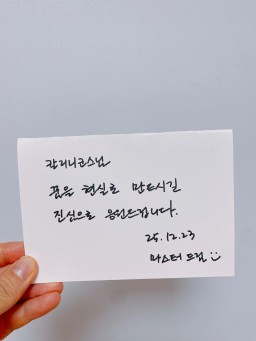 칸리니코스님
꿈을 현실로 만드시길
진심으로 응원드립니다.
25.12.23
마스터 드림